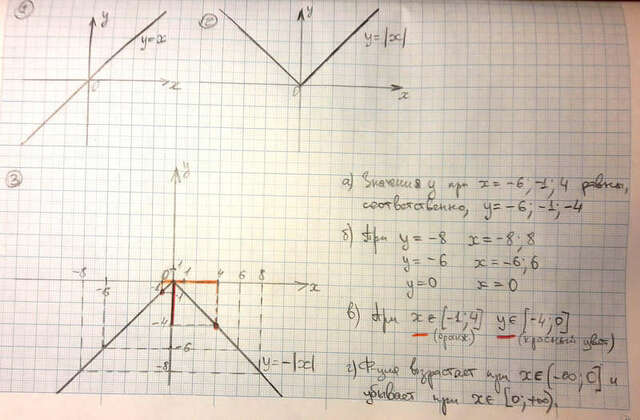 1
y
y=x
0
x
2
y
y=|x|
0
x
3
y
а) Значения y при x = -6; -1; 4 равны,
соответственно, y = -6; -1; -4
б) При y = -8 x = -8; 8
y = -6 x = -6; 6
y = 0 x = 0
в) При x ∈ [-1; 4] y ∈ [-4; 0]
(оранж) (красный цвет)
г) Ф-ция возрастает при x ∈ (-∞; 0] и
убывает при x ∈ [0; +∞).
-8 -6 0 1 4 6 8 x
-1
-4
-6
-8
y = -|x|